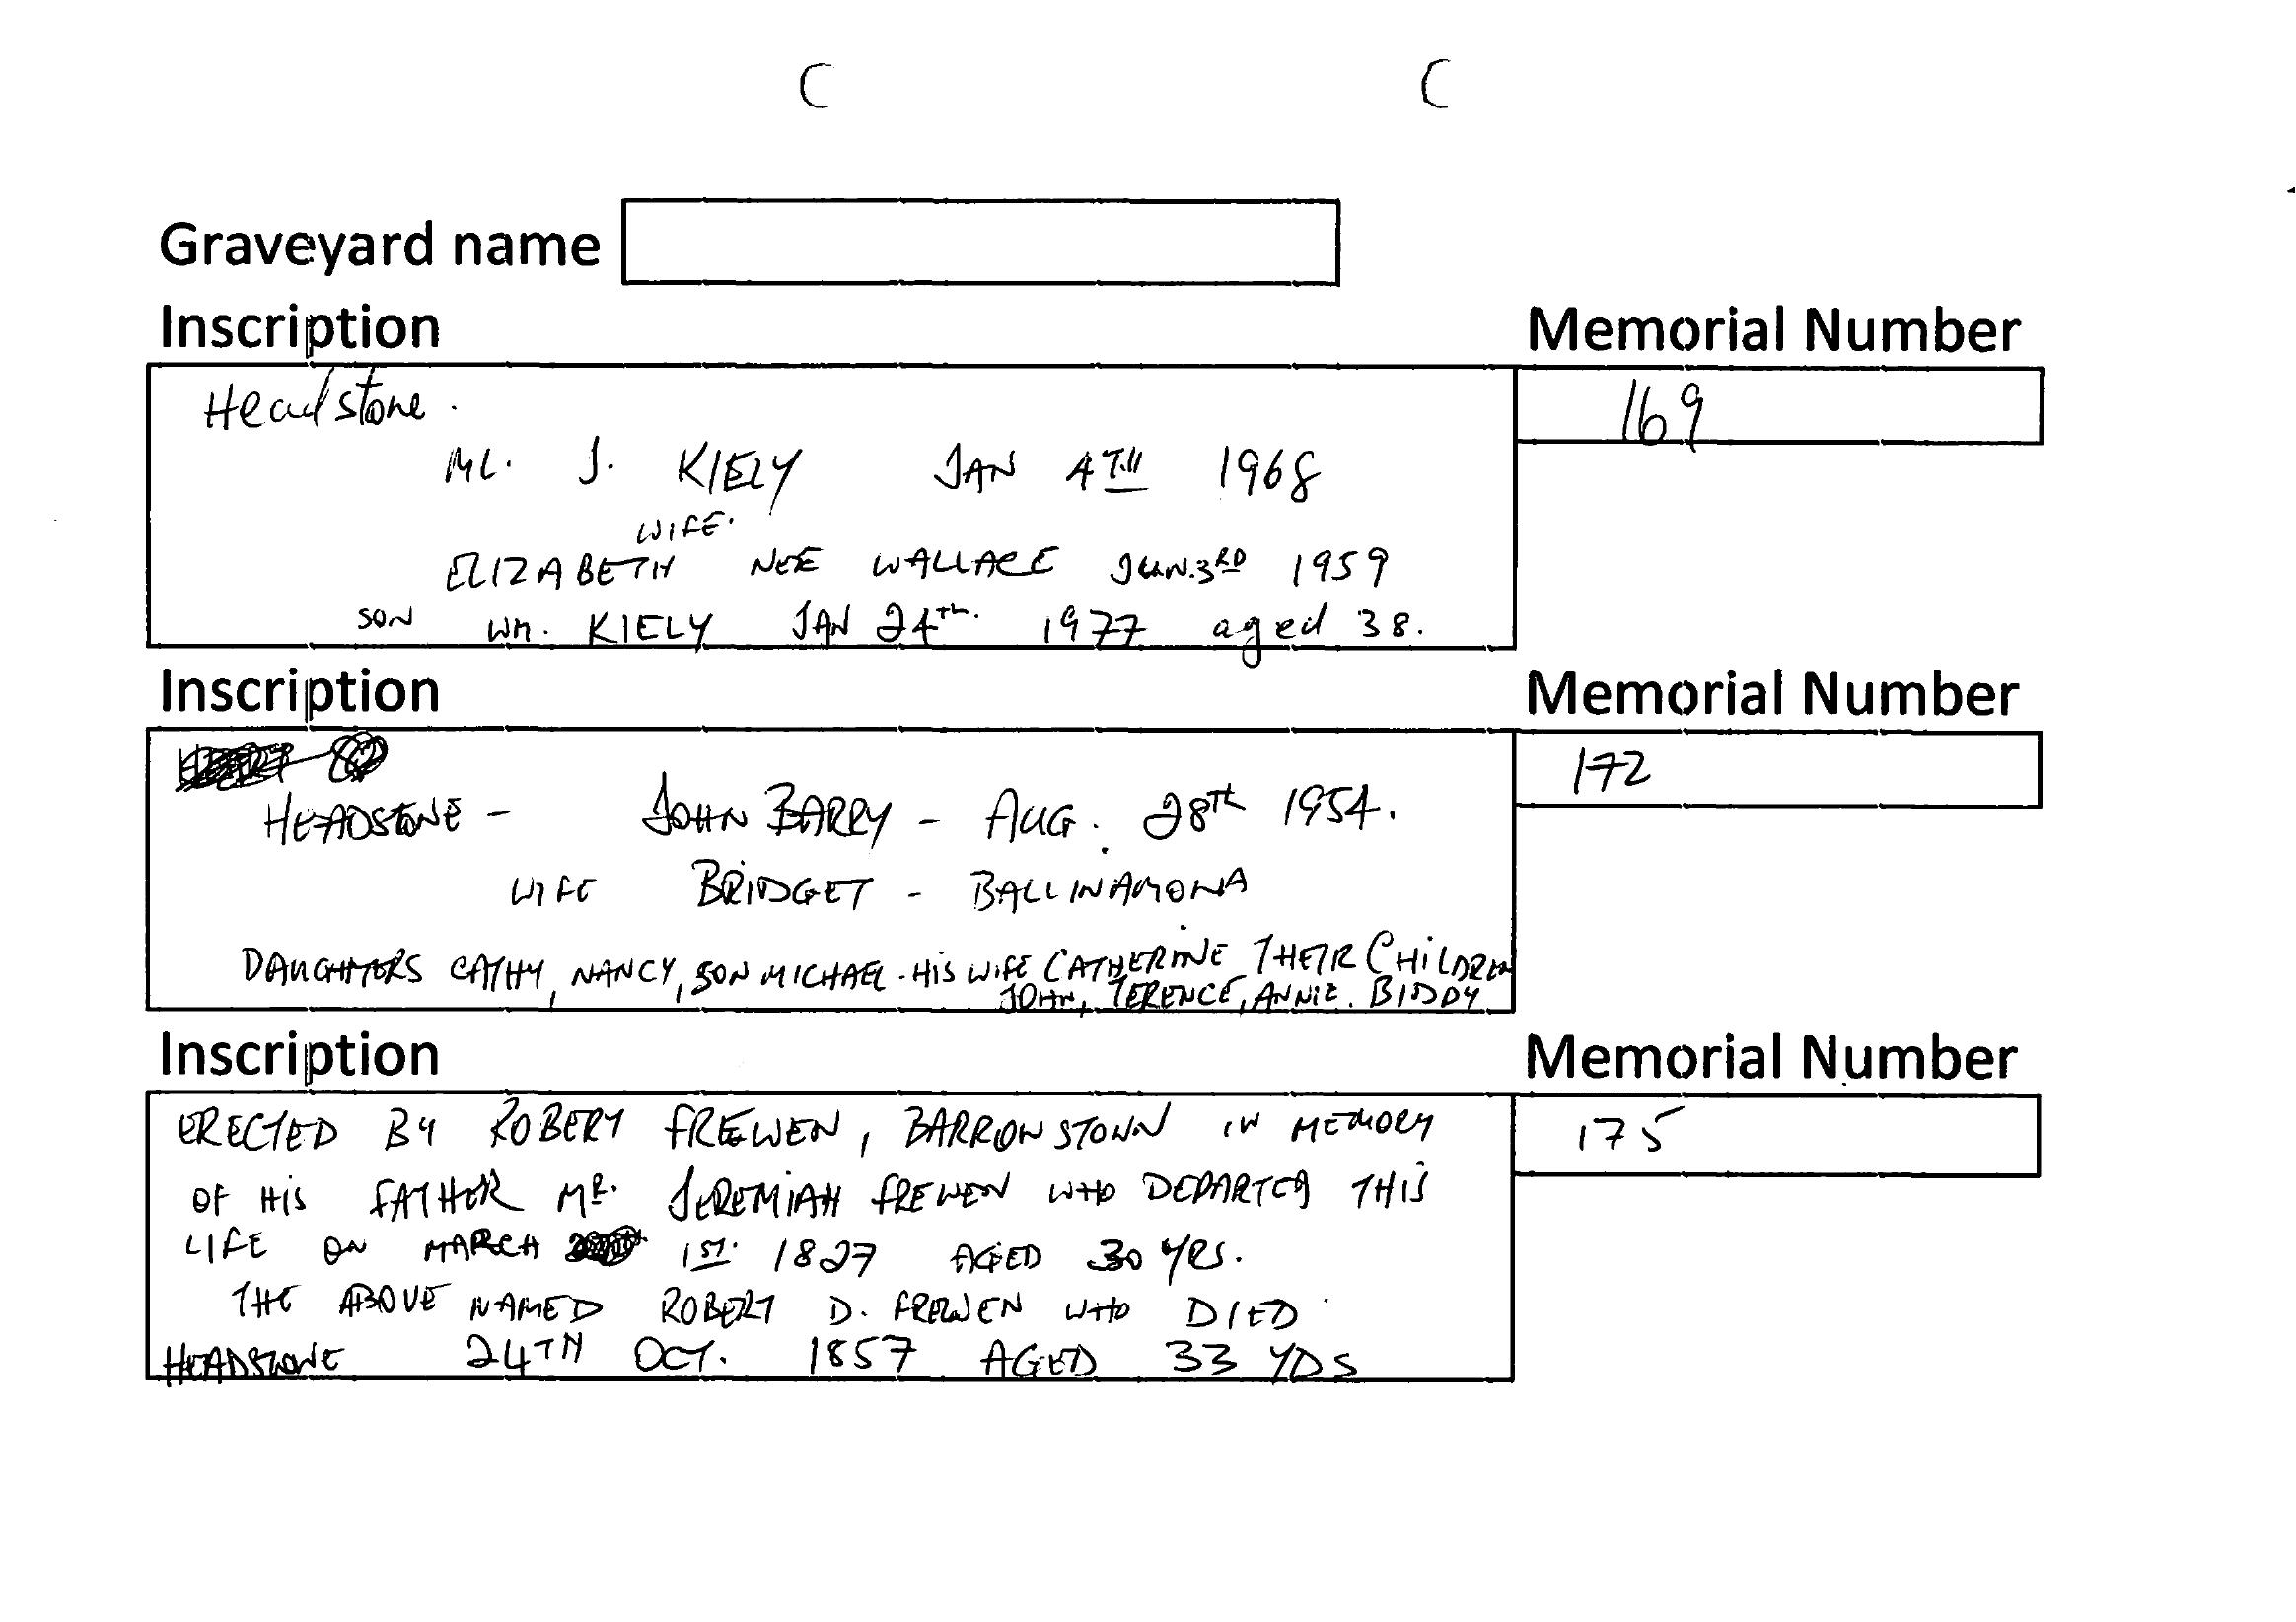 Graveyard name
Inscription
Memorial Number
Headstone.
169
ML. J. KIELY JAN 4TH 1968
WIFE.
ELIZABETH NEE WALLACE JUN. 3RD 1959
SON WM. KIELY JAN 24TH. 1977 aged 38.
Inscription
Memorial Number
172
HEADSTONE - JOHN BARRY - AUG. 28TH 1954.
WIFE BRIDGET - BALLINAMONA
DAUGHTERS CATHY, NANCY, SON MICHAEL - HIS WIFE CATHERINE THEIR CHILDREN
JOHN, TERENCE, ANNIE. BIDDY
Inscription
Memorial Number
ERECTED BY ROBERT FREWEN, BARRONSTOWN IN MEMORY
175
OF HIS FATHER MR. JEREMIAH FREWEN WHO DEPARTED THIS
LIFE ON MARCH 1ST. 1827 AGED 30 YRS.
THE ABOVE NAMED ROBERT D. FREWEN WHO DIED
HEADSTONE 24TH OCT. 1857 AGED 33 YDS